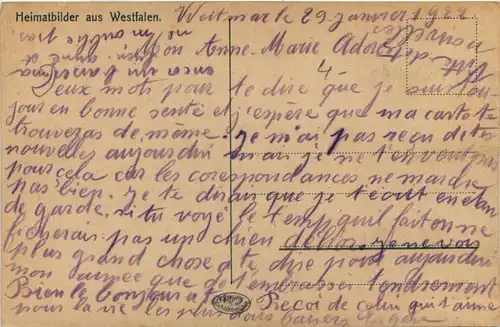 Heimatbilder aus Westfalen.
Weitmar le 29 janvier 1922
Mon Anne-Marie Adorée
Deux mots pour te dire que je suis tou-
jour en bonne senté et j'espère que ma carte te
trouveras de meme. Je m'ai pas reçu de tes
nouvelles aujourdui mai je ne t'en veut pas
pour cela car les corespondances ne marche
pas bien. Je te dirai que je t'ecrit en etan
de garde. si tu voye le temp quil fait on ne
ficherais pas un chien dehors. Je ne vois
plus grand chose a te dire pour aujourdui
mon aimée que de t'embrasser tendrement
Bien le bonjour a
Recoi de celui qui t'aime
pour la vie les plus doux baisers